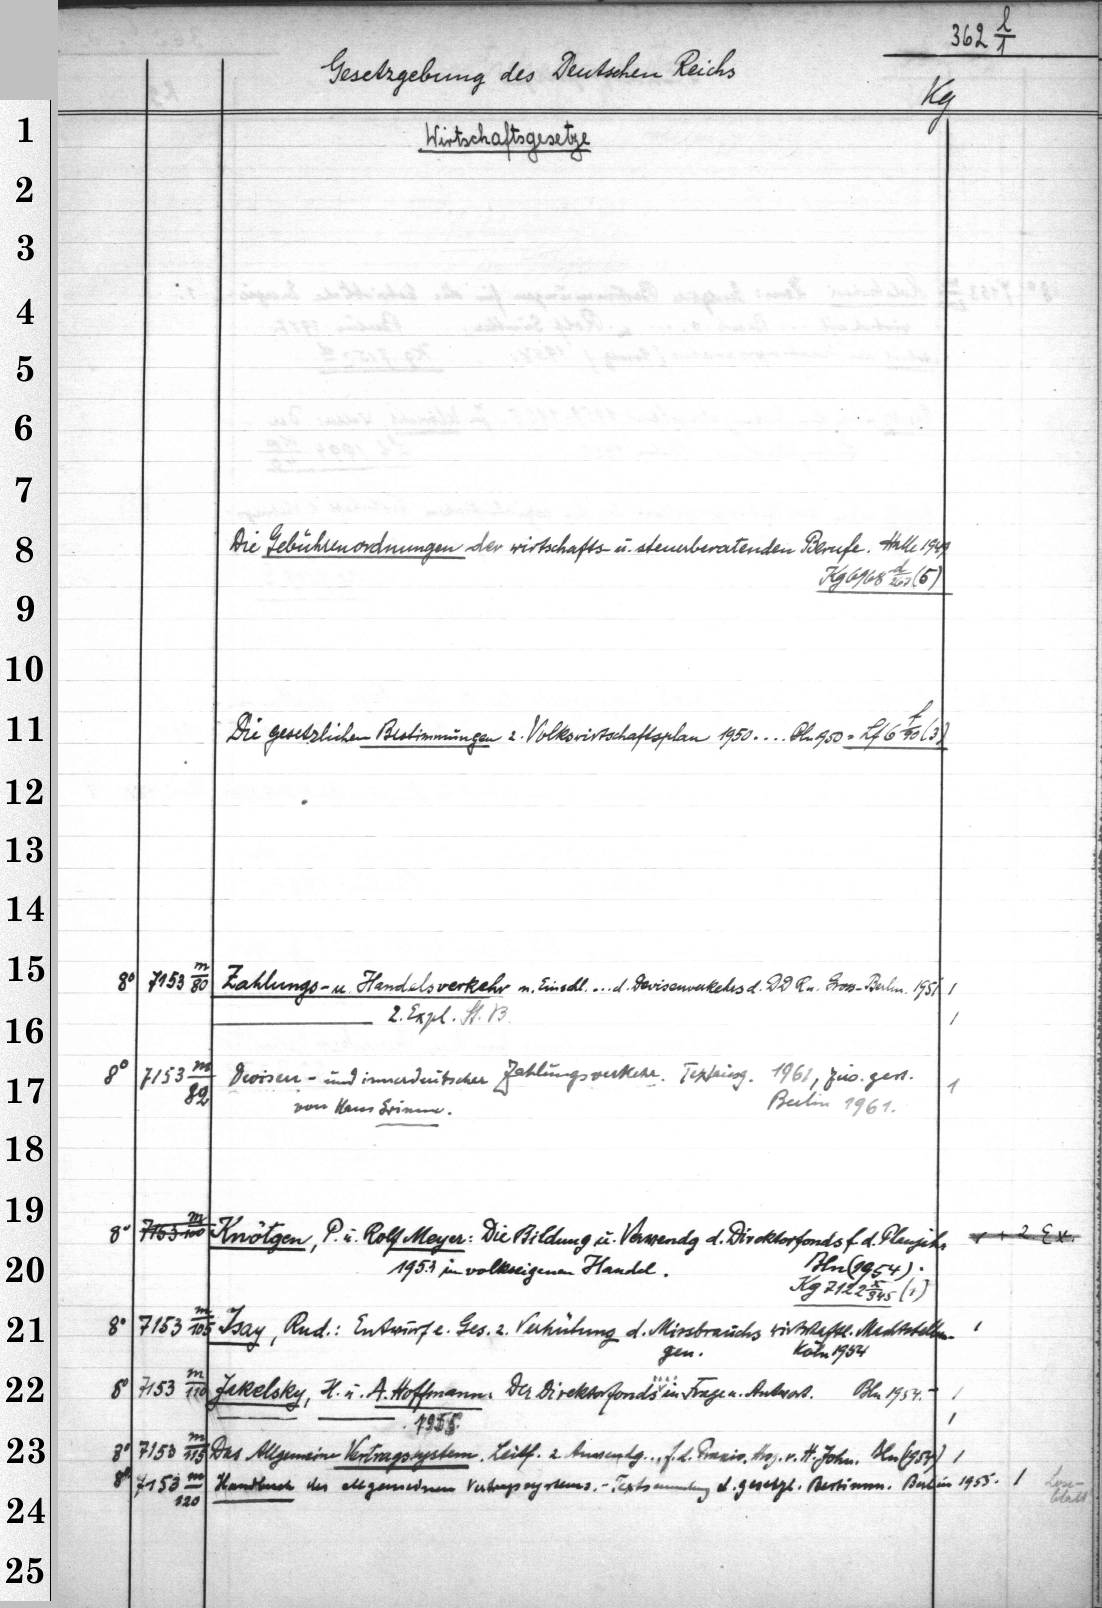 362 l/1
Gesetzgebung des Deutschen Reichs
Kg
Wirtschaftsgesetze
1
2
3
4
5
6
7
8 Die Gebührenordnungen der wirtschafts- u. steuerberatenden Berufe. Halle 1949
Kg 6968 d/260 (5)
9
10
11 Die gesetzlichen Bestimmungen z. Volkswirtschaftsplan 1950.... Bln 950 = Lf 6 f/90 (3)
12
13
14
15 8° 7153 m/80 Zahlungs- u. Handelsverkehr m. Einschl. ... d. Devisenverkehrs d. DDR u. Gross-Berlin. 1951 1
16 2. Expl. St. B. 1
17 8° 7153 m/82 Devisen- und innerdeutscher Zahlungsverkehr. Textausg. 1961, zus. gest. 1
von Hans Grimm. Berlin 1961.
18
19 8° 7153 m/100 Knötgen, P. u. Rolf Meyer: Die Bildung u. Verwendg d. Direktorfonds f. d. Planjahr 1 + 2 Ex.
20 1953 im volkseigenen Handel. Bln (1954).
Kg 7122 x/345 (1)
21 8° 7153 m/105 Isay, Rud.: Entwurf e. Ges. z. Verhütung d. Missbrauchs wirtschaftl. Machtstellun- 1
gen. Köln 1954
22 8° 7153 m/110 Jakelsky, H. u. A. Hoffmann: Der Direktorfonds in Frage u. Antwort. Bln 1954. - 1
1955. 1
23 8° 7153 m/115 Das Allgemeine Vertragssystem. Leitf. z. Anwendg... f. d. Praxis. Hrsg. v. H. John. Bln (954) 1
8° 7153 m/120 Handbuch des allgemeinen Vertragssystems. - Textsammlung d. gesetzl. Bestimm. Berlin 1955. 1 Lese-
blatt
24
25